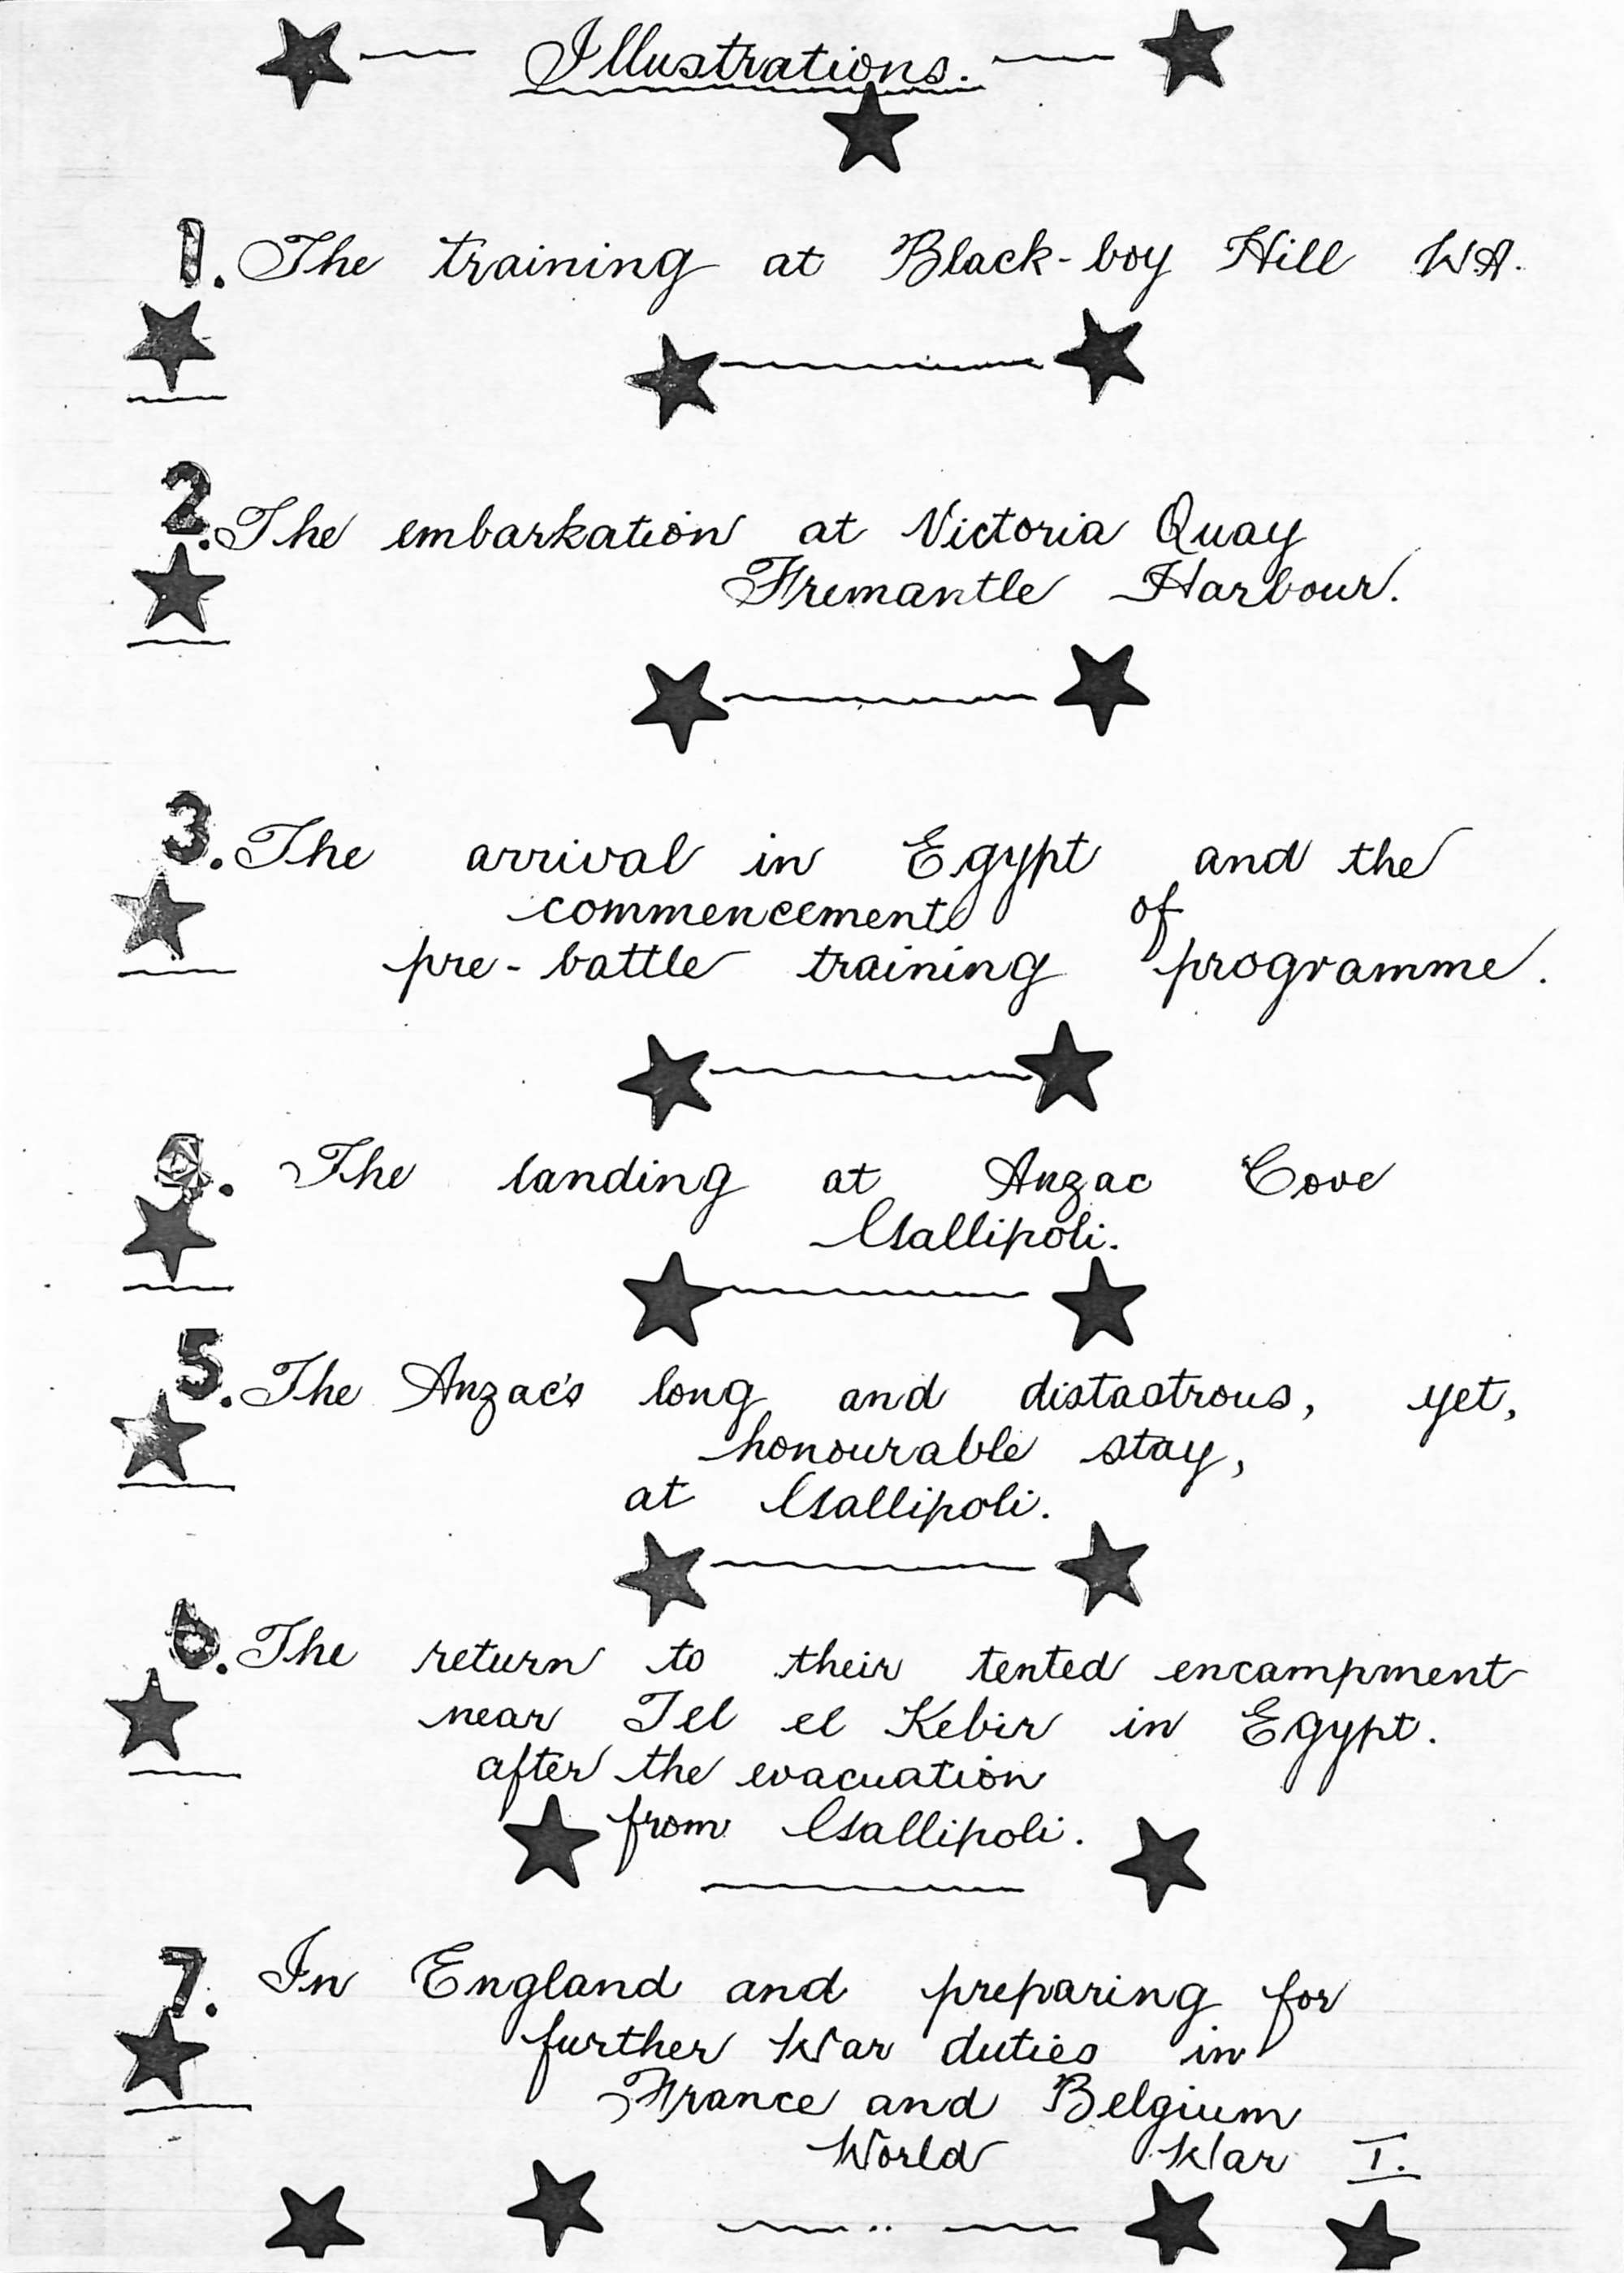 Illustrations.
1. The training at Black-boy Hill W.A.
2. The embarkation at Victoria Quay
Fremantle Harbour.
3. The arrival in Egypt and the
commencement of
pre-battle training programme.
4. The landing at Anzac Cove
Gallipoli.
5. The Anzac's long and distastrous, yet,
honourable stay,
at Gallipoli.
6. The return to their tented encampment
near Tel el Kebir in Egypt.
after the evacuation
from Gallipoli.
7. In England and preparing for
further War duties in
France and Belgium
World War I.